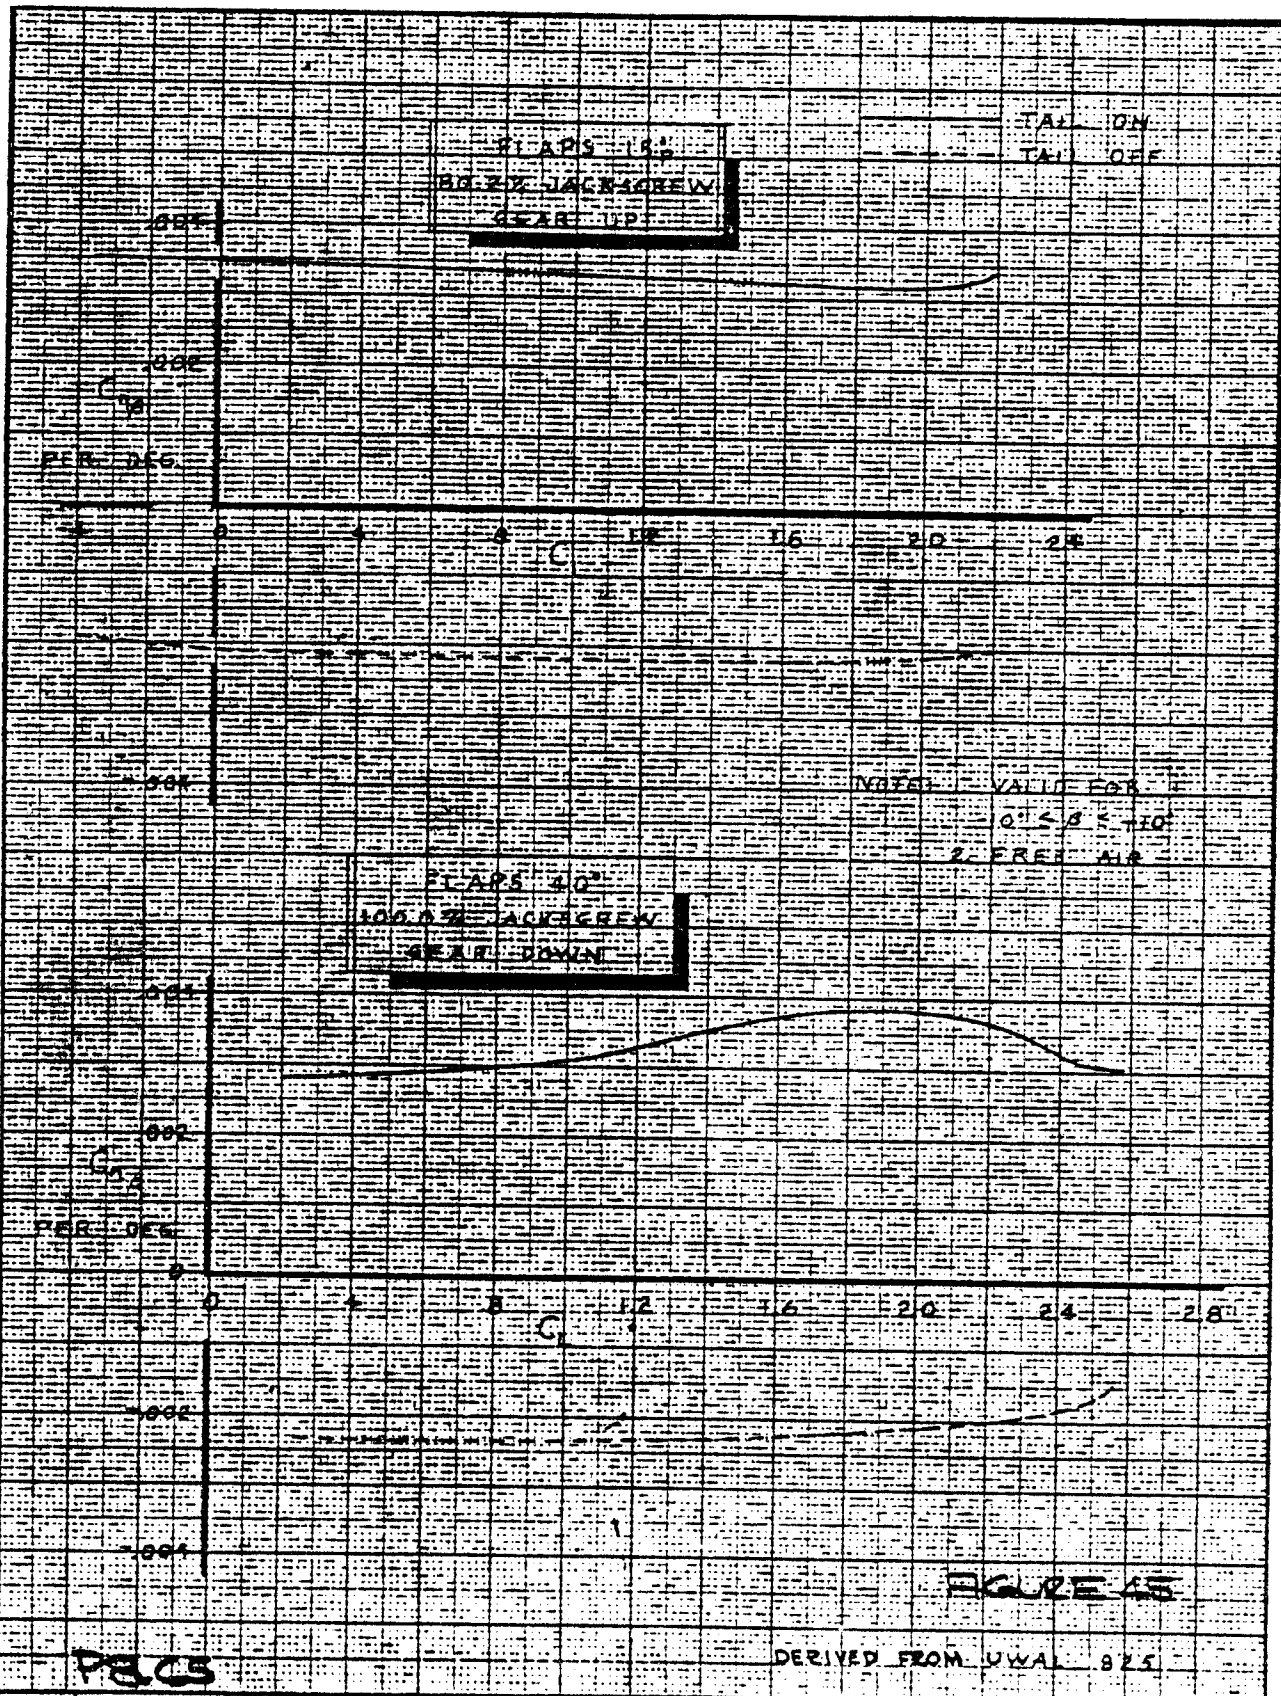 TAIL ON
TAIL OFF
FLAPS 15°
80.2% JACKSCREW
GEAR UP
.004
.002
Cnβ
PER DEG.
0 .4 .8 1.2 1.6 2.0 2.4
CL
-.004
NOTE: VALID FOR
0° ≤ β ≤ +10°
2. FREE AIR
FLAPS 40°
100.0% JACKSCREW
GEAR DOWN
.004
.002
Cnβ
PER DEG.
0
0 .4 .8 1.2 1.6 2.0 2.4 2.8
CL
-.002
-.004
FIGURE 45
DERIVED FROM UWAL 825